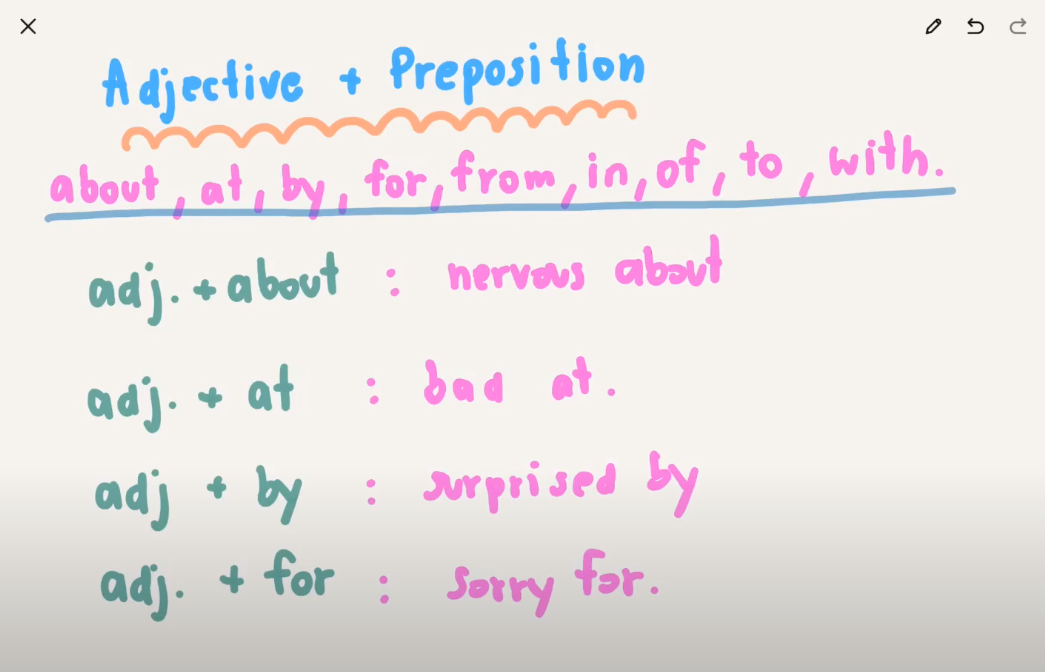 Adjective + Preposition
about, at, by, for, from, in, of, to, with.
adj. + about : nervous about
adj. + at : bad at.
adj + by : surprised by
adj. + for : sorry for.